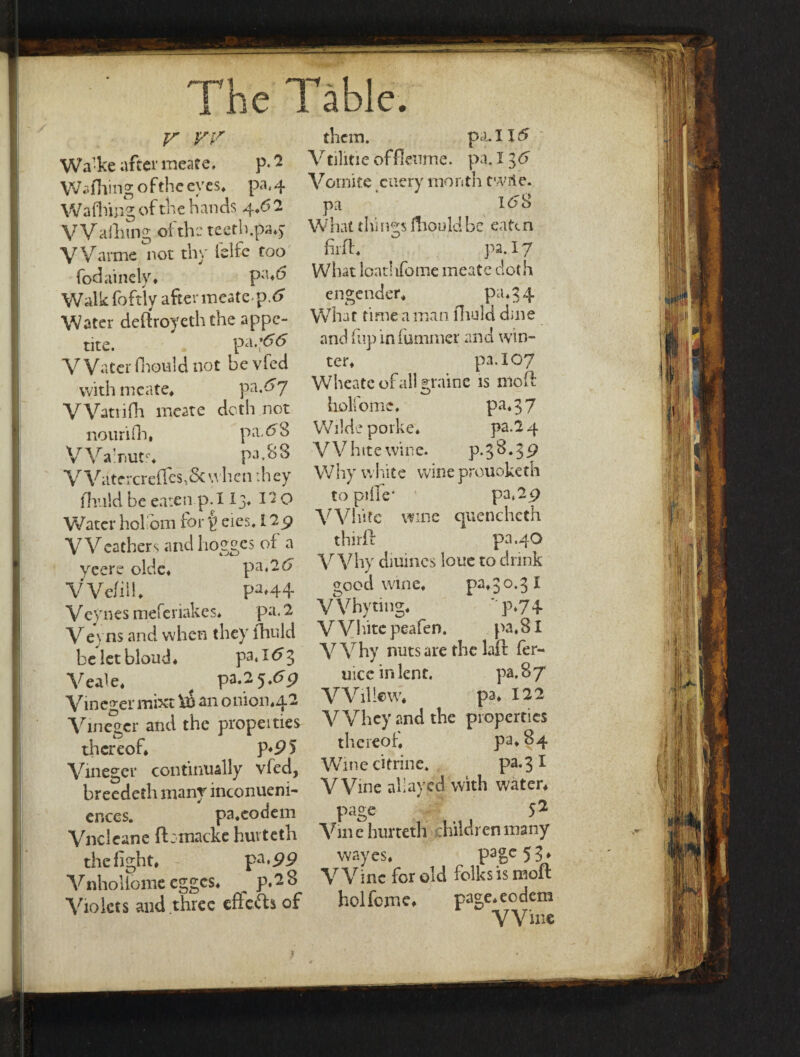 The Table.
V VV
Walke after meate. p.2
Waſhing of the eyes. pa.4
Waſhing of the hands 4.62
VVaſhing of the teeth.pa.5
VVarme not thy ſelfe too
ſodainely. pa.6
Walk ſoftly after meate p.6
Water deſtroyeth the appe-
tite. pa.66
VVater ſhould not be vſed
with meate. pa.67
VVatriſh meate doth not
nouriſh, pa.68
VValnuts. pa.88
VVatercreſſes,& when they
ſhuld be eaten p.113. 120
Water holſom for ẏ eies.129
VVeathers and hogges of a
yeere olde. pa.26
VVeſill. pa.44
Veynes meſeriakes. pa.2
Veyns and when they ſhuld
be let bloud. pa.163
Veale. pa.25.69
Vineger mixt wͭ an onion.42
Vineger and the properties
thereof. p.95
Vineger continually vſed,
breedeth many inconueni-
ences. pa.eodem
Vncleane ſtomacke hurteth
the ſight. pa.99
Vnholſome egges. p.28
Violets and three effects of
them. pa.116
Vtilitie of fleume. pa.136
Vomite euery month twiſe.
pa 168
What things ſhould be eaten
firſt. pa.17
What loathſome meate doth
engender. pa.34
What time a man ſhuld dine
and ſup in ſummer and win-
ter. pa.107
Wheate of all graine is moſt
holſome. pa.37
Wilde porke. pa.24
VVhite wine. p.38.39
Why white wine prouoketh
to piſſe. pa.29
VVhite wine quencheth
thirſt pa.40
VVhy diuines loue to drink
good wine. pa.30.31
VVhyting. p.74
VVhite peaſen. pa.81
VVhy nuts are the laſt ſer-
uice in lent. pa.87
VVillow. pa. 122
VVhey and the properties
thereof. pa.84
Wine citrine. pa.31
VVine allayed with water.
page 52
Vine hurteth children many
wayes. page 53.
VVine for old folks is moſt
holſome. page.eodem
VVine